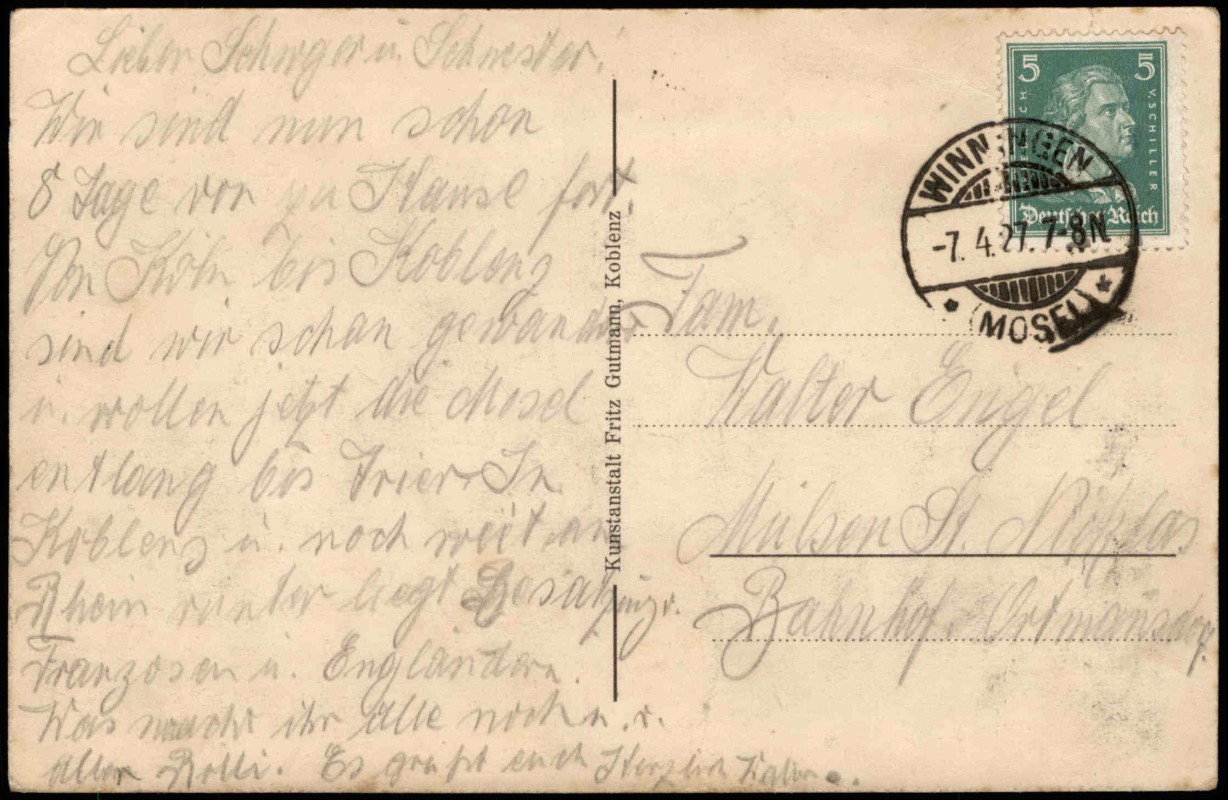 Lieber Schwger u. Schwester.
Wir sind nun schon
8 Tage von zu Hause fort.
Von Köln bis Koblenz
sind wir schon gewandert
u. wollen jetzt die Mosel
entlang bis Trier. In
Koblenz u. noch weit am
Rhein runter liegt Besatzung.
Franzosen u. Engländern.
Was macht ihr alle noch u.
Es grüßt euch Herzlich
Kunstanstalt Fritz Gutmann, Koblenz
5 5
V. SCHILLER
Deutsches Reich
WINNINGEN
-7.4.27.7-8N
* (MOSEL) *
Fam.
Walter Engel
Mülsen St. Niklas
Bahnhof Ortmansdorf.